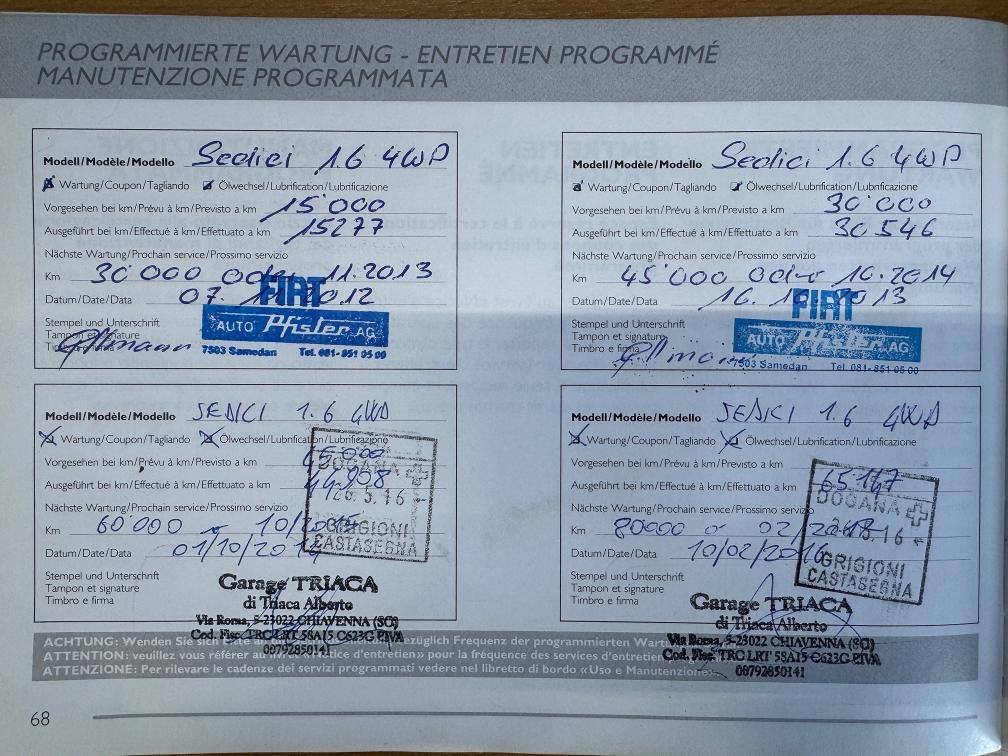 PROGRAMMIERTE WARTUNG - ENTRETIEN PROGRAMMÉ
MANUTENZIONE PROGRAMMATA
Modell/Modèle/Modello Sedici 1.6 4WD
Wartung/Coupon/Tagliando Ölwechsel/Lubrification/Lubrificazione
Vorgesehen bei km/Prévu à km/Previsto a km 15'000
Ausgeführt bei km/Effectué à km/Effettuato a km 15277
Nächste Wartung/Prochain service/Prossimo servizio
Km 30'000 oder 11.2013
Datum/Date/Data 07. 12
Stempel und Unterschrift
Tampon et signature
Timbro e firma
FIAT
AUTO Pfister AG
7503 Samedan Tel. 081-851 05 00
Modell/Modèle/Modello Sedici 1.6 4WD
Wartung/Coupon/Tagliando Ölwechsel/Lubrification/Lubrificazione
Vorgesehen bei km/Prévu à km/Previsto a km 30'000
Ausgeführt bei km/Effectué à km/Effettuato a km 30.546
Nächste Wartung/Prochain service/Prossimo servizio
Km 45'000 oder 10.2014
Datum/Date/Data 16. 10 2013
Stempel und Unterschrift
Tampon et signature
Timbro e firma
FIAT
AUTO Pfister AG
7503 Samedan Tel. 081-851 05 00
Modell/Modèle/Modello SEDICI 1.6 4WD
Wartung/Coupon/Tagliando Ölwechsel/Lubrification/Lubrificazione
Vorgesehen bei km/Prévu à km/Previsto a km
Ausgeführt bei km/Effectué à km/Effettuato a km
Nächste Wartung/Prochain service/Prossimo servizio
Km 60'000 o 10/2015
Datum/Date/Data 01/10/2014
Stempel und Unterschrift
Tampon et signature
Timbro e firma
DOGANA
26.5.16
GRIGIONI
CASTASEGNA
Garage TRIACA
di Triaca Alberto
Via Roma, 5-23022 CHIAVENNA (SO)
Cod. Fisc. TRC LRT 58A15 C623G P.IVA
00792850141
Modell/Modèle/Modello SEDICI 1.6 4WD
Wartung/Coupon/Tagliando Ölwechsel/Lubrification/Lubrificazione
Vorgesehen bei km/Prévu à km/Previsto a km
Ausgeführt bei km/Effectué à km/Effettuato a km 65.147
Nächste Wartung/Prochain service/Prossimo servizio
Km 80000 o 02/2018
Datum/Date/Data 10/02/2016
Stempel und Unterschrift
Tampon et signature
Timbro e firma
DOGANA
26.5.16
GRIGIONI
CASTASEGNA
Garage TRIACA
di Triaca Alberto
Via Roma, 5-23022 CHIAVENNA (SO)
Cod. Fisc. TRC LRT 58A15 C623G P.IVA
00792850141
ACHTUNG: Wenden Sie sich bezüglich Frequenz der programmierten
ATTENTION: veuillez vous référer au d'entretien» pour la fréquence des services d'entretien
ATTENZIONE: Per rilevare le cadenze dei servizi programmati vedere nel libretto di bordo «Uso e Manutenzione»
68